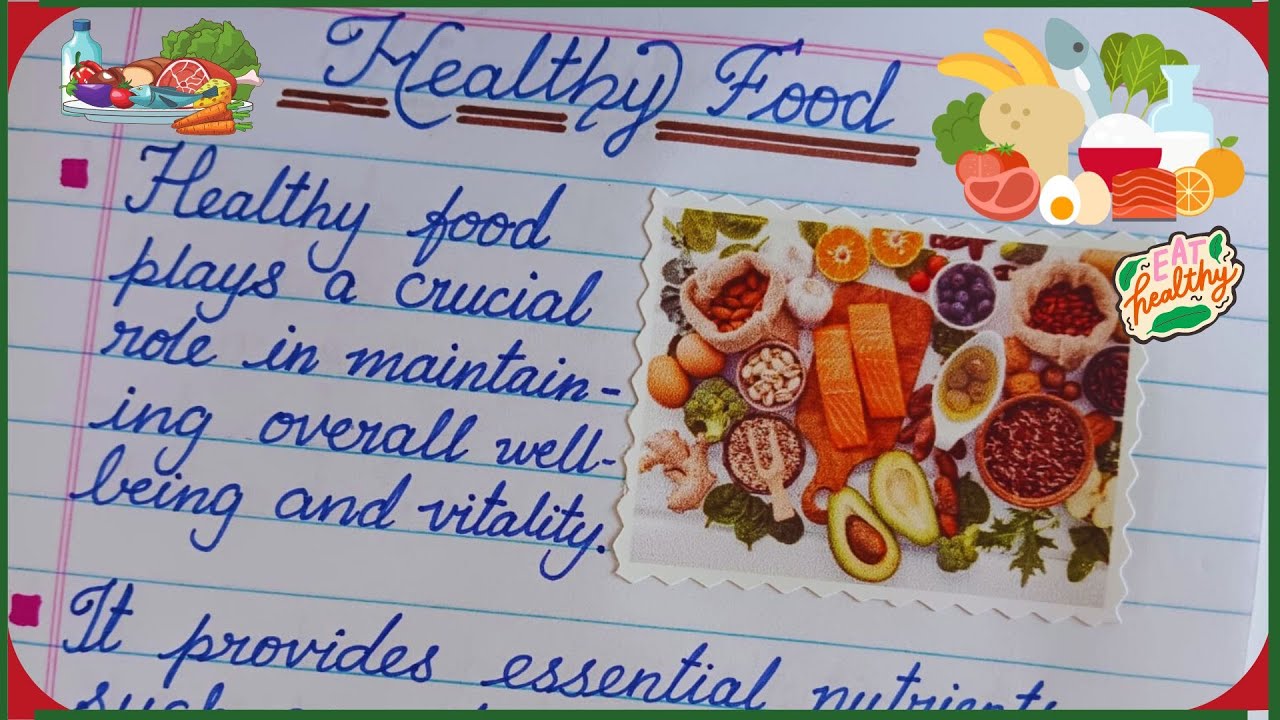 Healthy Food
Healthy food
plays a crucial
role in maintain-
ing overall well-
being and vitality.
It provides essential nutrients
such
EAT
healthy